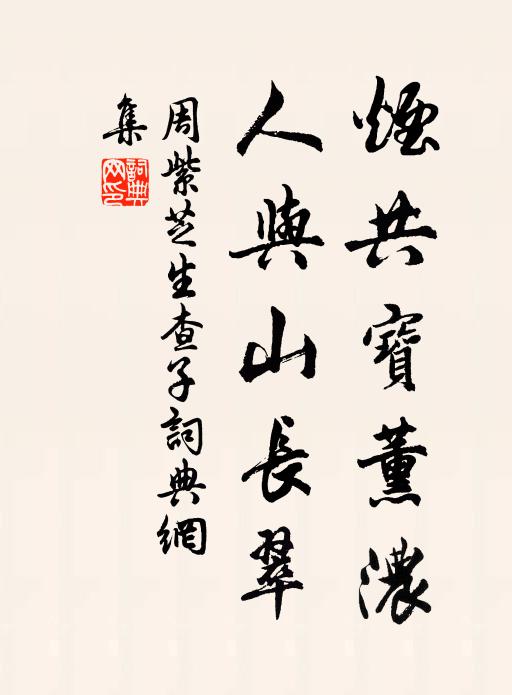 煙共寶薰濃
人與山長翠
周紫芝生查子詞典網
集
詞典網印